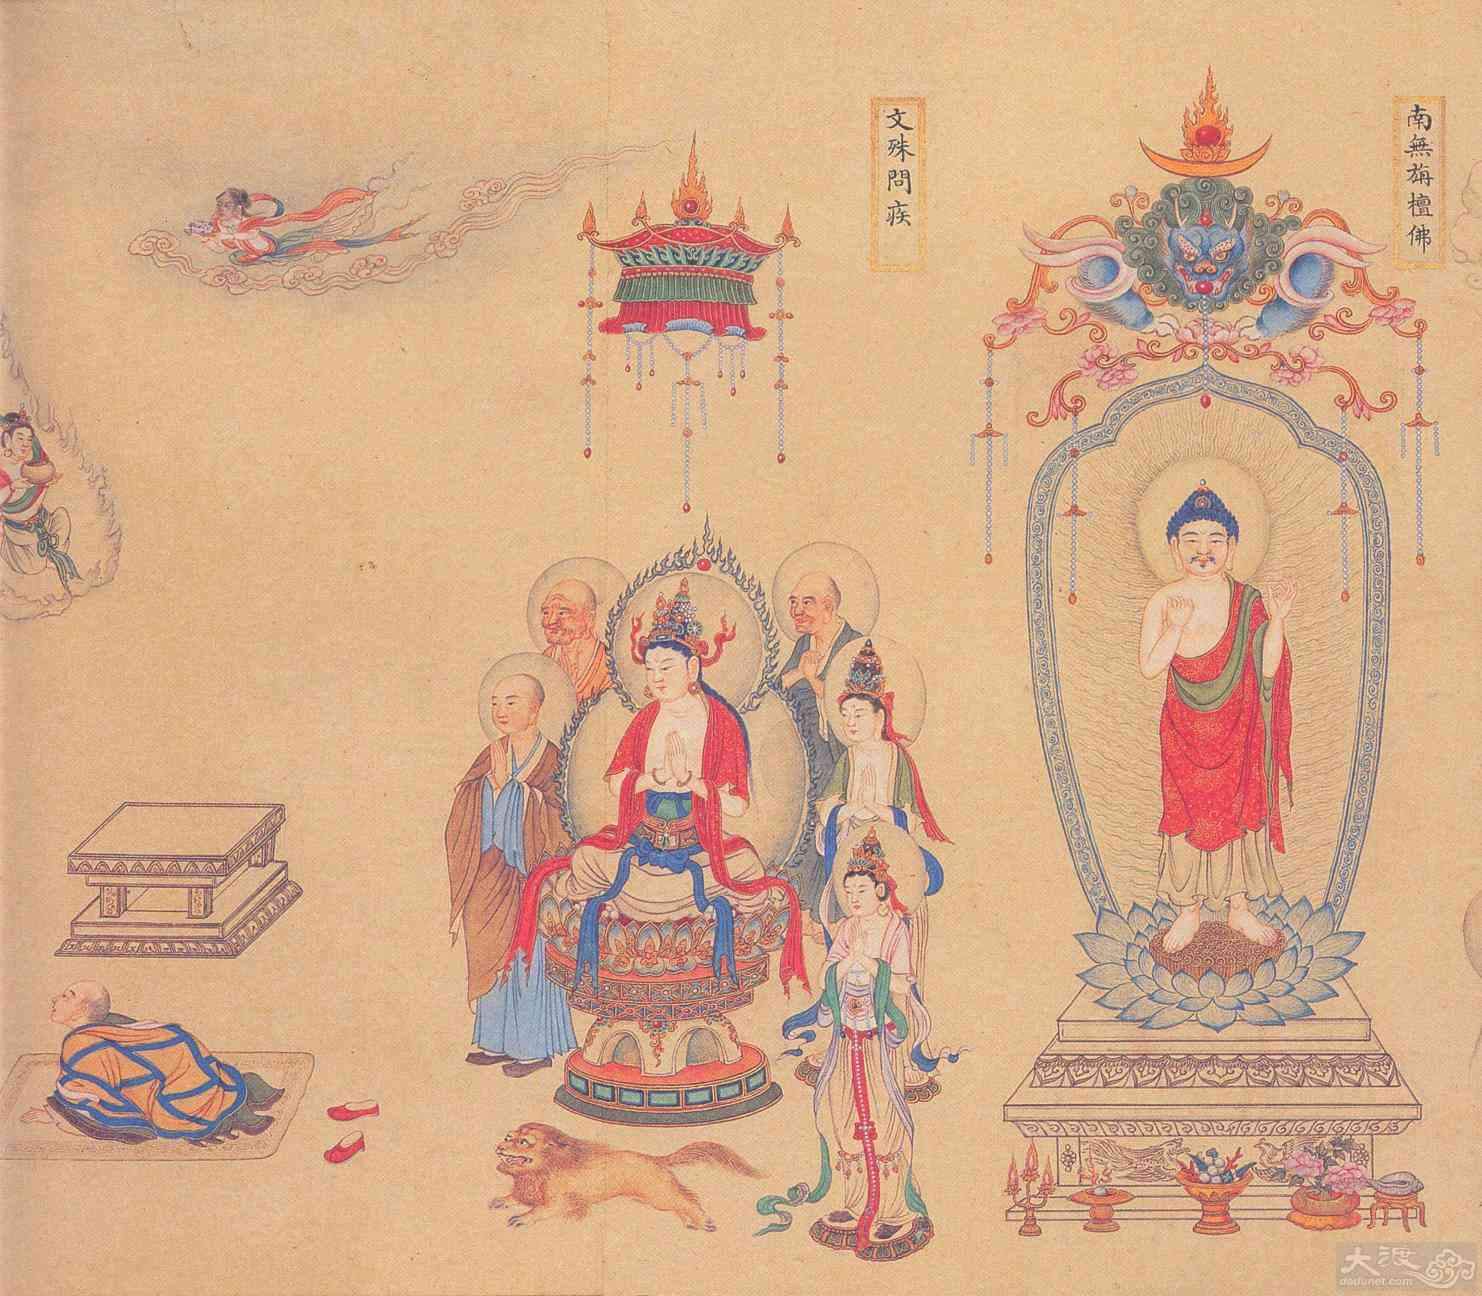 南無旃檀佛
文殊問疾
大渡
dadunet.com